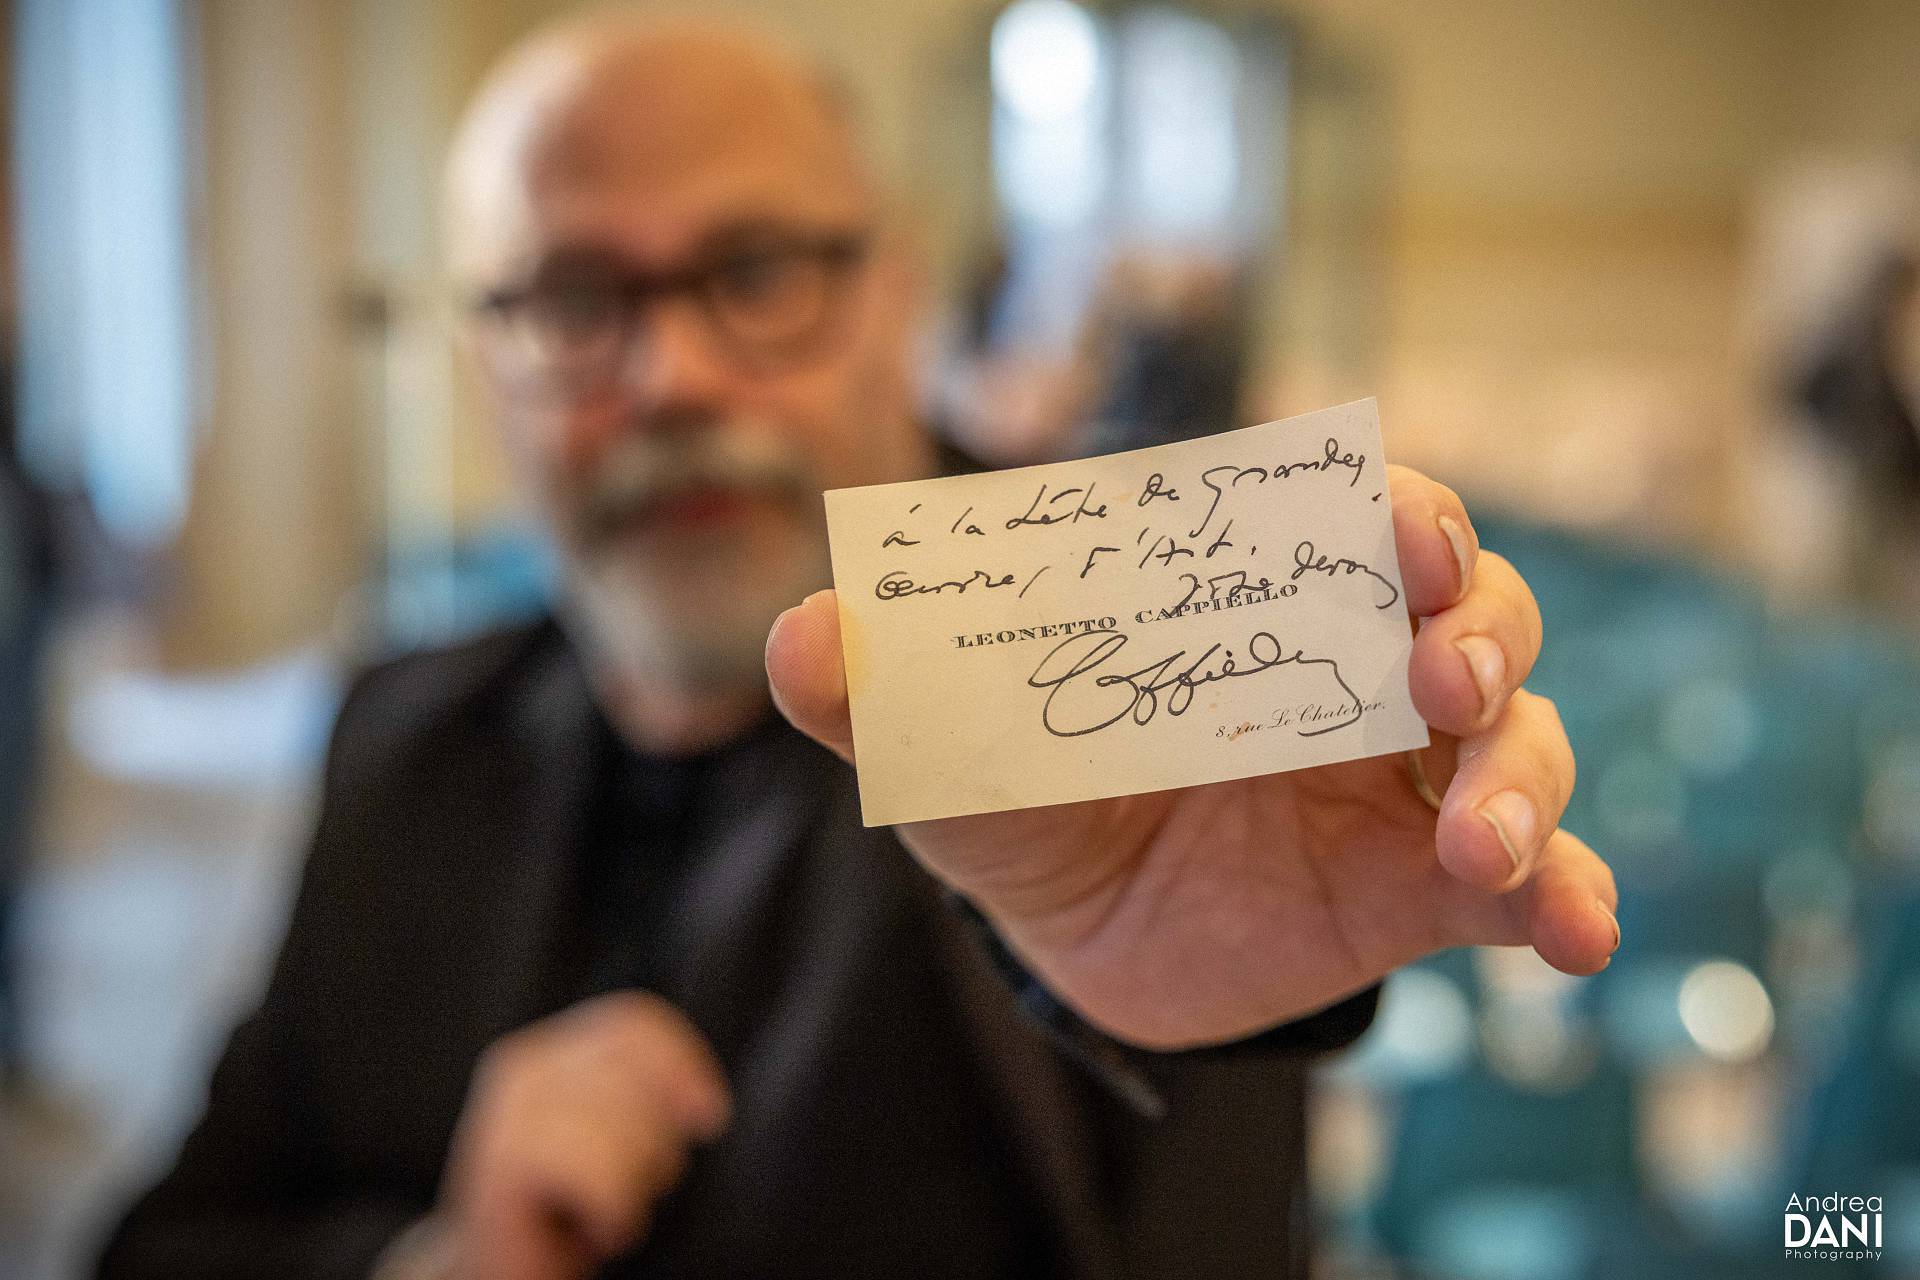 à la tête de grandes
Œuvres, l'Art.
très dévoué
LEONETTO CAPPIELLO
Cappiello
8, rue Le Chatelier.
Andrea
DANI
Photography